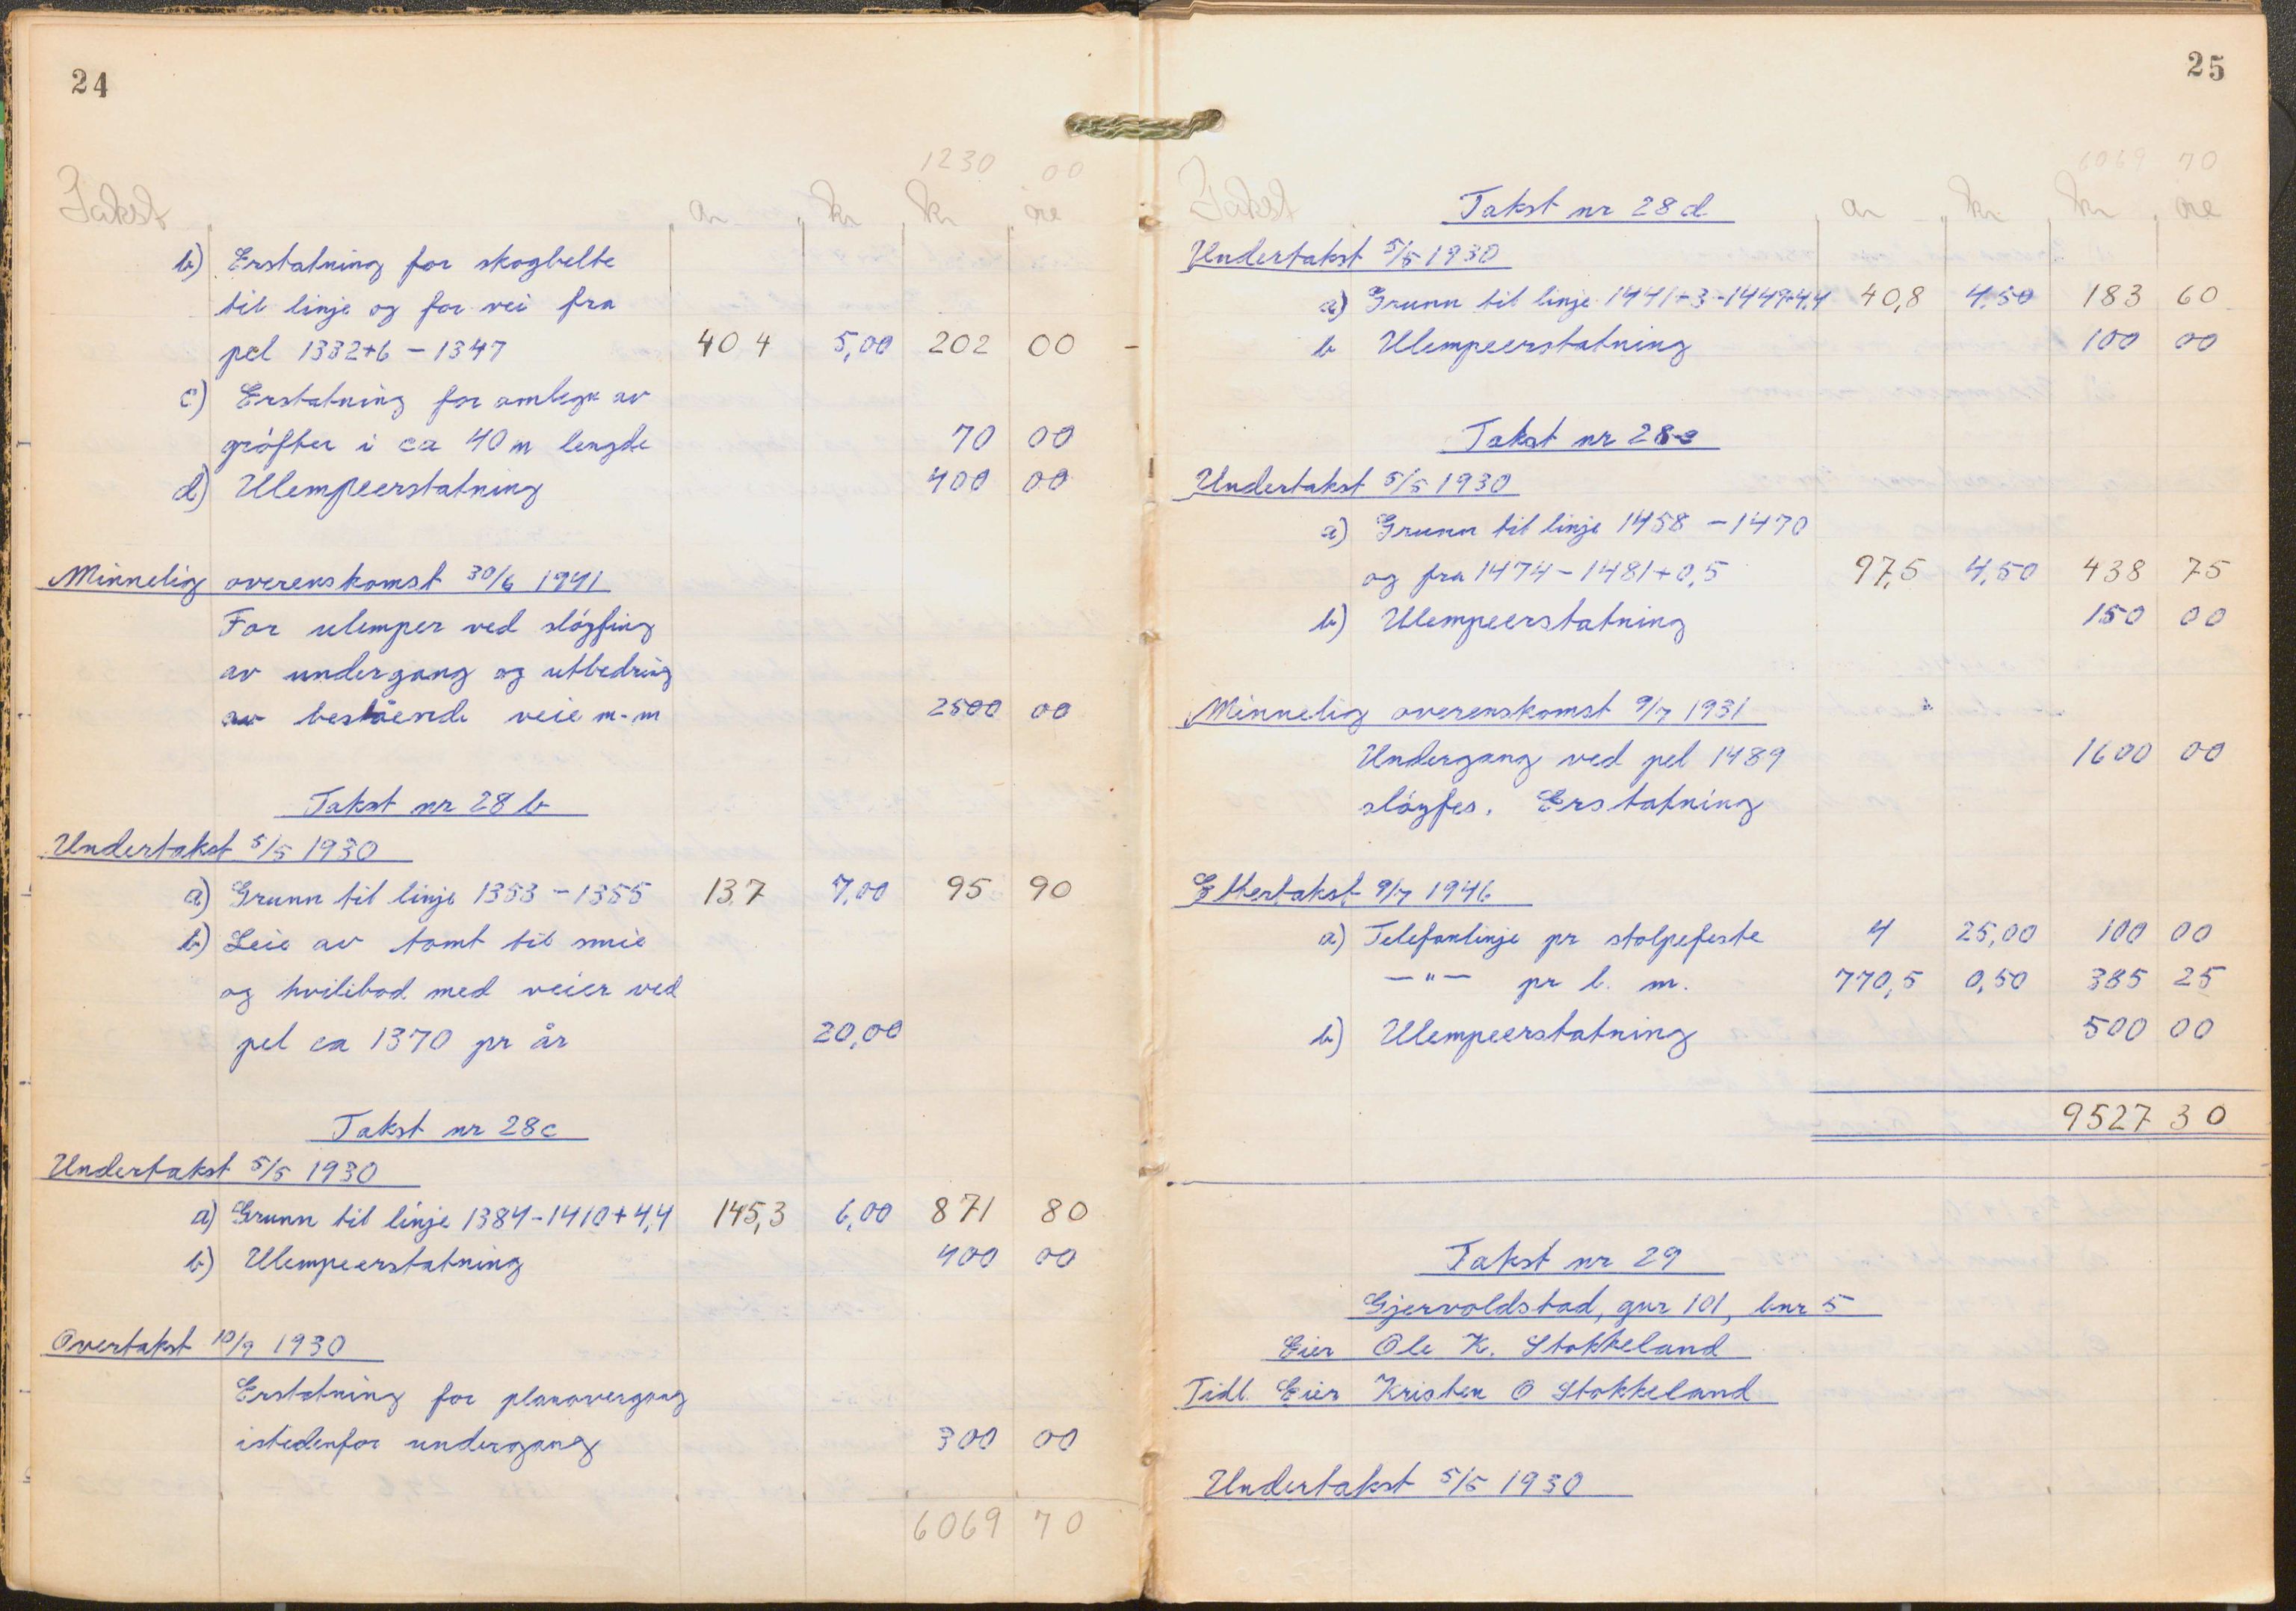 24
1230 00
Takst ar kr kr øre
b) Erstatning for skogbelte
til linje og for vei fra
pel 1332+6 - 1347 40 4 5,00 202 00
c) Erstatning for omlegn av
grøfter i ca 40 m lengde 70 00
d) Ulempeerstatning 400 00
Minnelig overenskomst 30/6 1941
For ulemper ved sløyfing
av undergang og utbedring
av bestående veie m.m 2500 00
Takst nr 28 b
Undertakst 5/5 1930
a) Grunn til linje 1353 - 1355 13,7 7,00 95 90
b) Leie av tomt til smie
og hvilebod med veier ved
pel ca 1370 pr år 20,00
Takst nr 28c
Undertakst 5/5 1930
a) Grunn til linje 1384-1410+4,4 145,3 6,00 871 80
b) Ulempeerstatning 400 00
Overtakst 10/9 1930
Erstatning for planovergang
istedenfor undergang 300 00
6069 70
25
6069 70
Takst ar kr kr øre
Takst nr 28d
Undertakst 5/5 1930
a) Grunn til linje 1441+3-1449+4,4 40,8 4,50 183 60
b Ulempeerstatning 100 00
Takst nr 28e
Undertakst 5/5 1930
a) Grunn til linje 1458 - 1470
og fra 1474 - 1481+0,5 97,5 4,50 438 75
b) Ulempeerstatning 150 00
Minnelig overenskomst 9/7 1931
Undergang ved pel 1489 1600 00
sløyfes. Erstatning
Ettertakst 9/7 1946
a) Telefonlinje pr stolpefeste 4 25,00 100 00
—"— pr l. m. 770,5 0,50 385 25
b) Ulempeerstatning 500 00
9527 30
Takst nr 29
Gjervoldstad, gnr 101, bnr 5
Eier Ole K. Stokkeland
Tidl. Eier Kristen O Stokkeland
Undertakst 5/5 1930